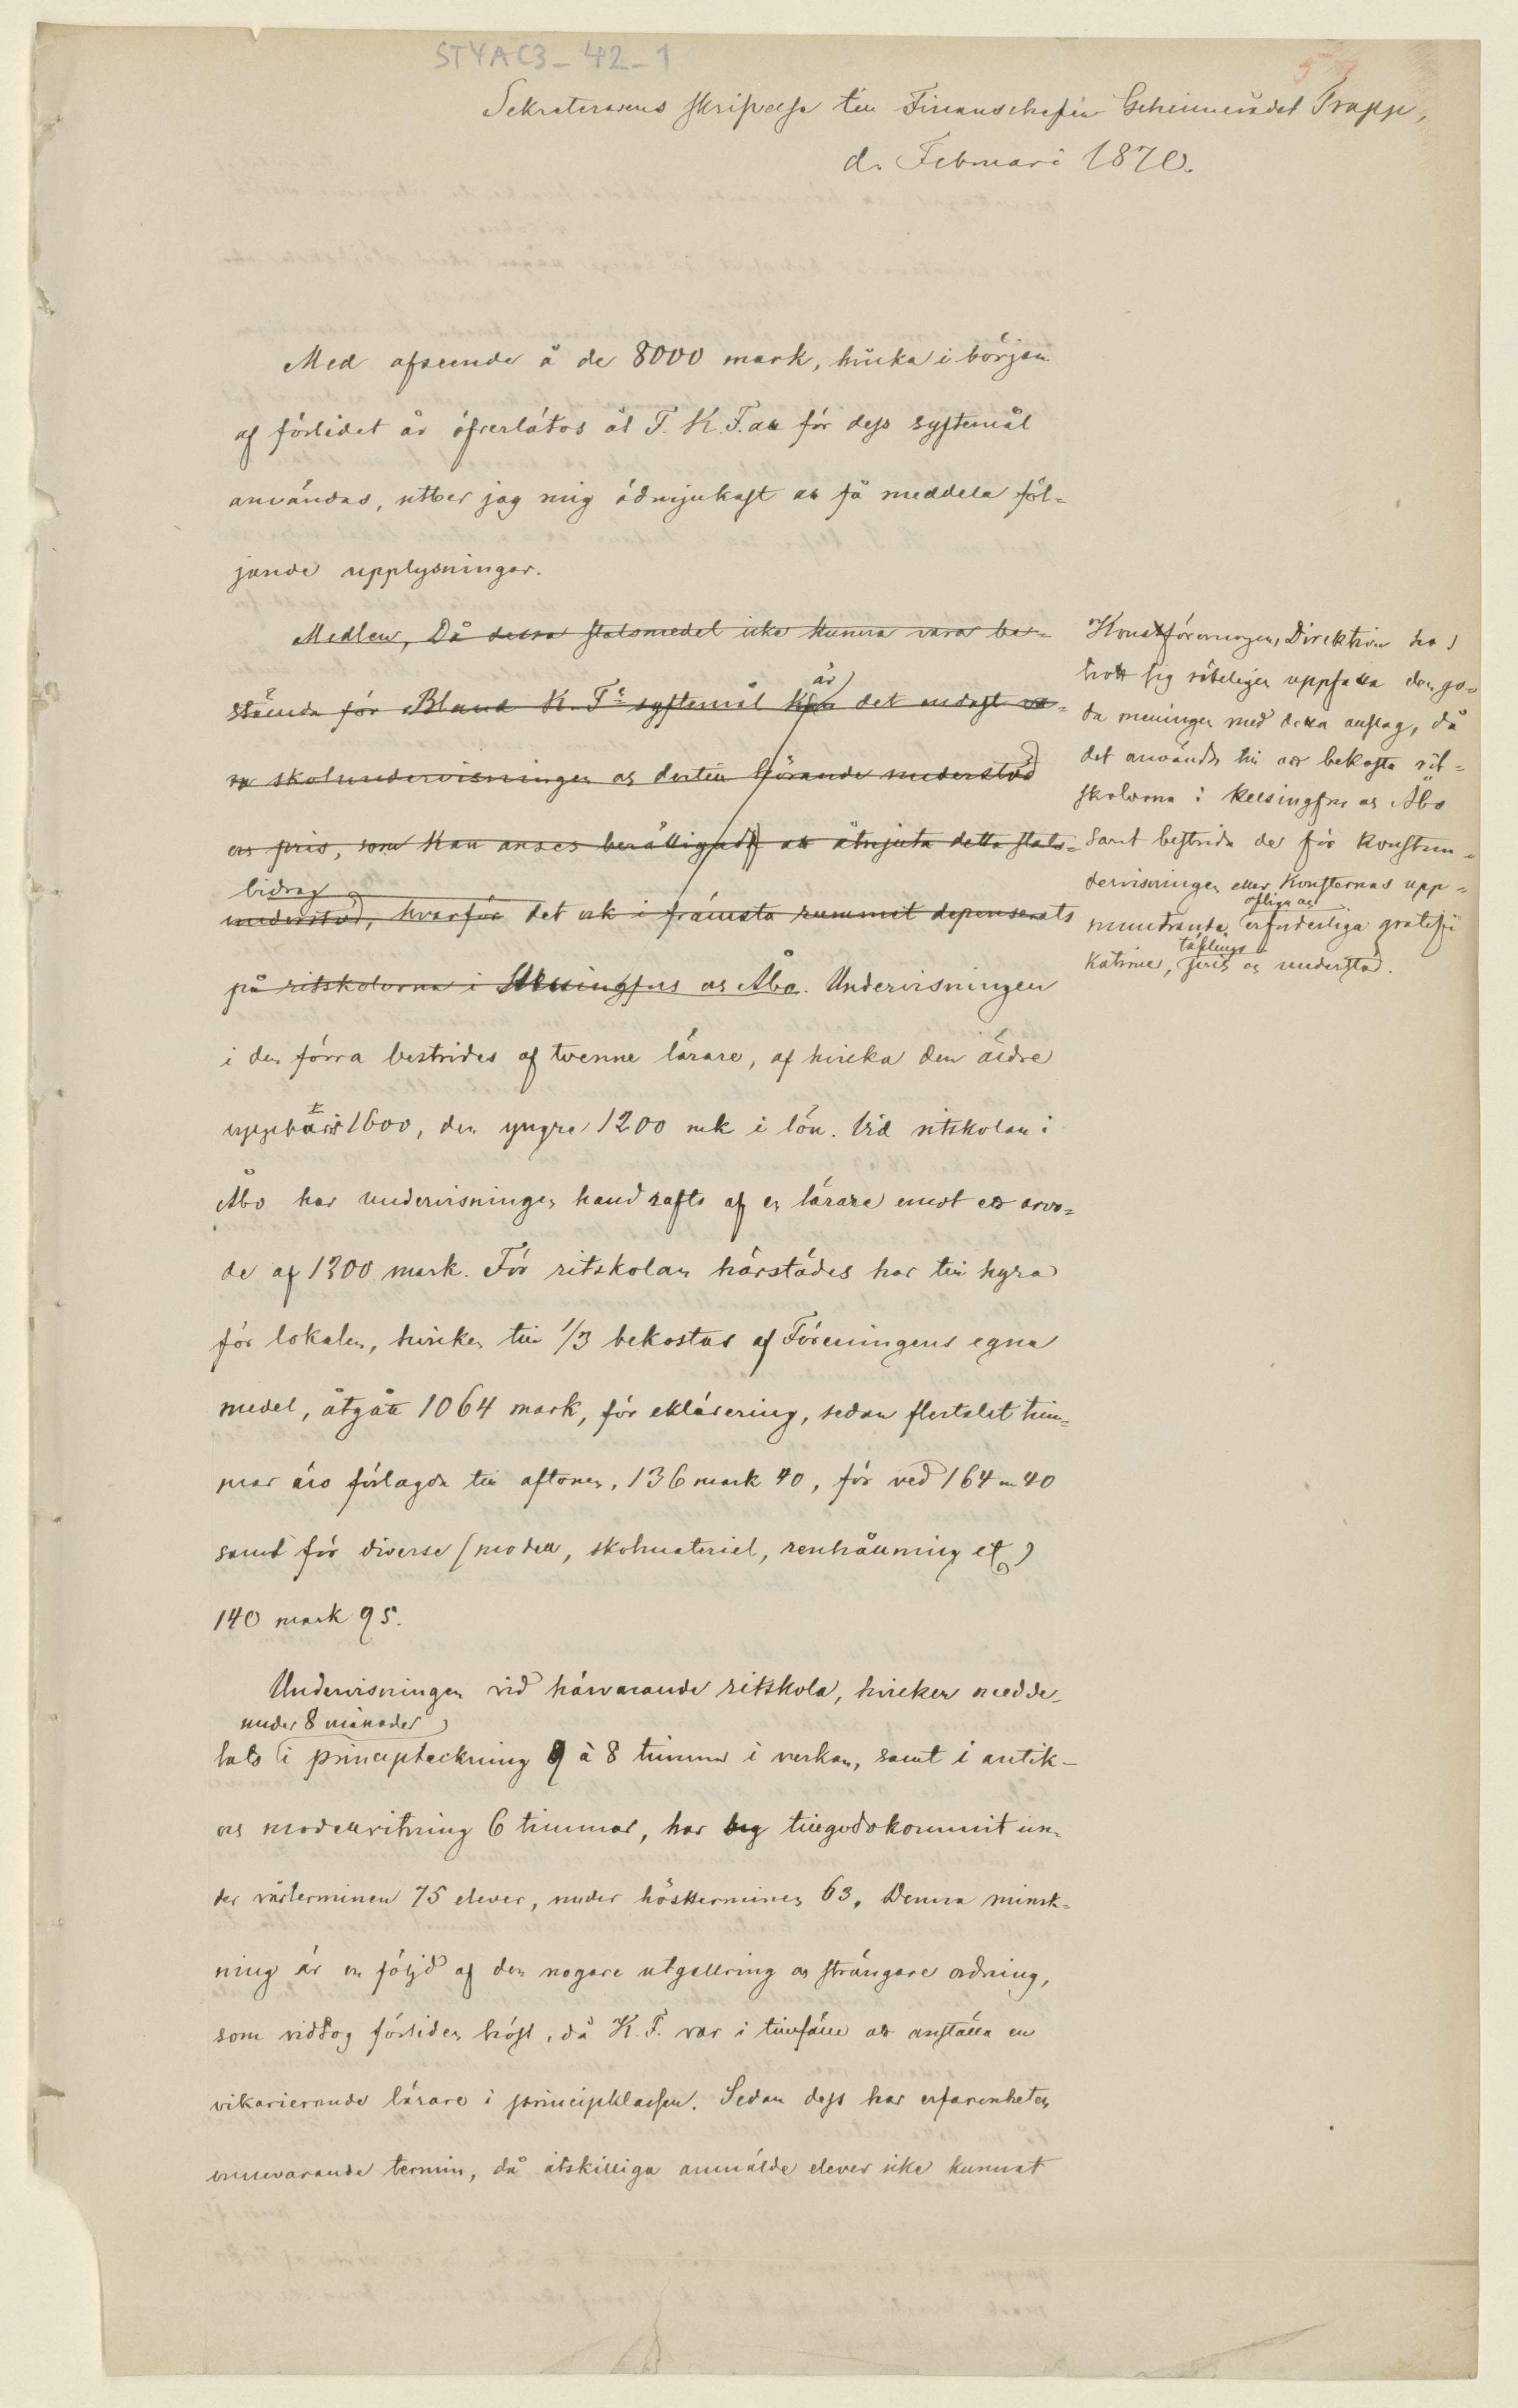 STYAC3_42_1
57
Sekreterarens skrifvelse till Finanschefen Geheimerådet Trapp,
d. Februari 1870.
Med afseende å de 8000 mark, hvilka i början
af förlidet år öfverlåtos åt F. K. F. att för dess syftemål
användas, utber jag mig ödmjukast att få meddela föl=
jande upplysningar.
Medlen, Då dessa statsmedel icke kunna vara be=
stämda för Bland K. F:s syftemål kan det endast va=
är
ra skolundervisningen och dertill hörande understöd
och pris, som kan anses berättigadt att åtnjuta detta stats=
bidrag
understöd, hvarför det ock i främsta rummet depenserats
på ritskolorna i Helsingfors och Åbo. Undervisningen
i den förra bestrides af tvenne lärare, af hvilka den äldre
uppburit 1600, den yngre 1200 mk i lön. Vid ritskolan i
Åbo har undervisningen handhafts af en lärare emot ett arvo=
de af 1300 mark. För ritskolan härstädes har till hyra
för lokalen, hvilken till 1/3 bekostas af Föreningens egna
medel, åtgått 1064 mark, för eklärering, sedan flertalet tim=
mar äro förlagda till aftonen, 136 mark 40, för ved 164 m 40
samt för diverse (modell, skolmateriel, renhållning etc)
140 mark 95.
Undervisningen vid härvarande ritskola, hvilken medde=
under 8 månader
lats i principteckning 9 à 8 timmar i veckan, samt i antik=
och modellritning 6 timmar, har tillgodokommit un=
der vårterminen 75 elever, under höstterminen 63. Denna minsk=
ning är en följd af den nogare utgallring och strängare ordning,
som vidtog förliden höst, då K. F. var i tillfälle att anställa en
vikarierande lärare i principklassen. Sedan dess har erfarenheten
innevarande termin, då åtskilliga anmälde elever icke kunnat
Konstföreningens Direktion har
trott sig riktigen uppfatta den go=
da meningen med detta anslag, då
det användts till att bekosta rit=
skolorna i Helsingfors och Åbo
samt bestrida de för konstun=
dervisningen eller konsternas upp=
öfliga och
muntrande erforderliga gratifi
täflings
kationer, pris och understöd.